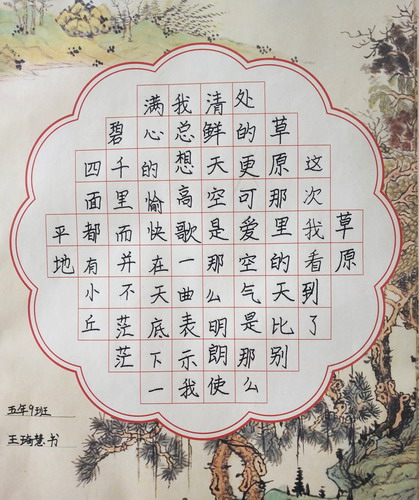 草原
这次我看到了
草原那里的天比别
处的更可爱空气是那么
清鲜天空是那么明朗使
我总想高歌一曲表示我
满心的愉快在天底下一
碧千里而并不茫茫
四面都有小丘
平地
五年9班
王琦慧书